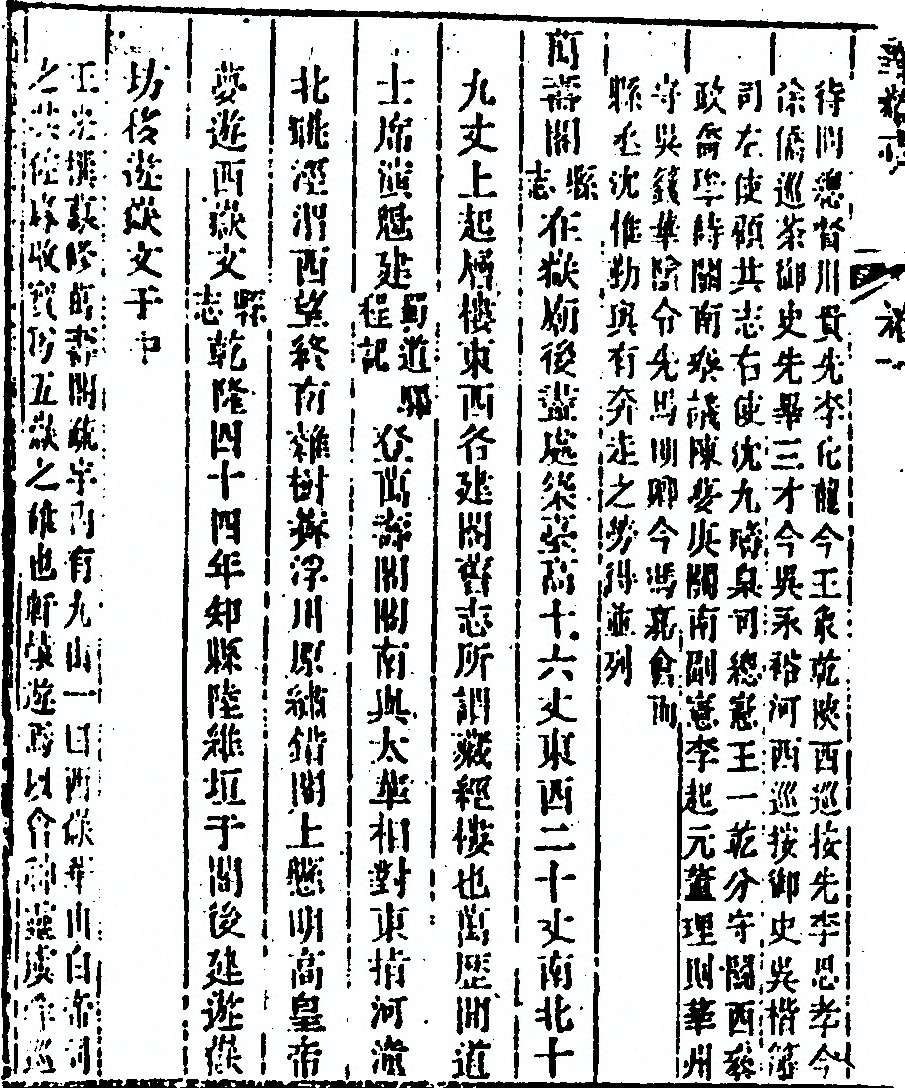 待問總督川貴先李化龍今王象乾陝西巡按先李思孝今
徐僑巡茶御史先畢三才今吳永裕河西巡按御史吳楷藩
司左使顧其志右使沈九疇臬司總憲王一乾分守關西叅
政喬學詩關南叅議陳燮與關南副憲李起元董理則華州
守吳鍰華陰令先馬明卿今馮嘉會而
縣丞沈惟勤與有奔走之勞得並列
萬壽閣縣志在嶽廟後盡處築臺高十六丈東西二十丈南北十
九丈上起層樓東西各建閣舊志所謂藏經樓也萬歷間道
士席演魁建蜀道驛程記登萬壽閣閣南與太華相對東指河潼
北眺涇渭西望終南雜樹蘇浮川原繡錯閣上懸明高皇帝
夢遊西嶽文縣志乾隆四十四年知縣陸維垣于閣後建遊嶽
坊後遊嶽文于中
撰敕修萬壽閣疏宇內有九山一曰西嶽華山白帝司
之五嶽之雄也軒轅遊焉以會神虞巡